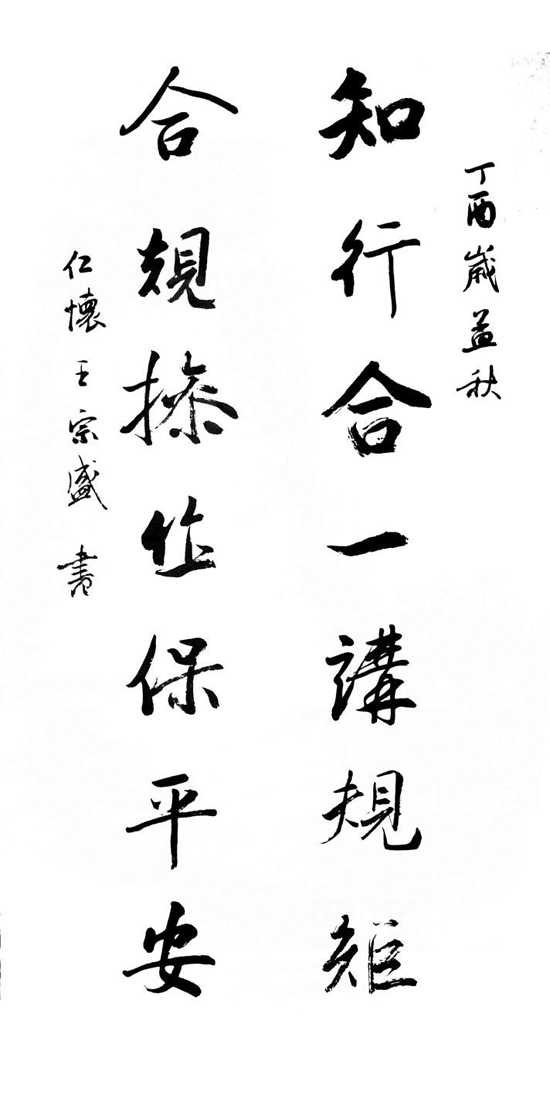 丁酉歲孟秋
知行合一講規矩
合規操作保平安
仁懷王宗盛書